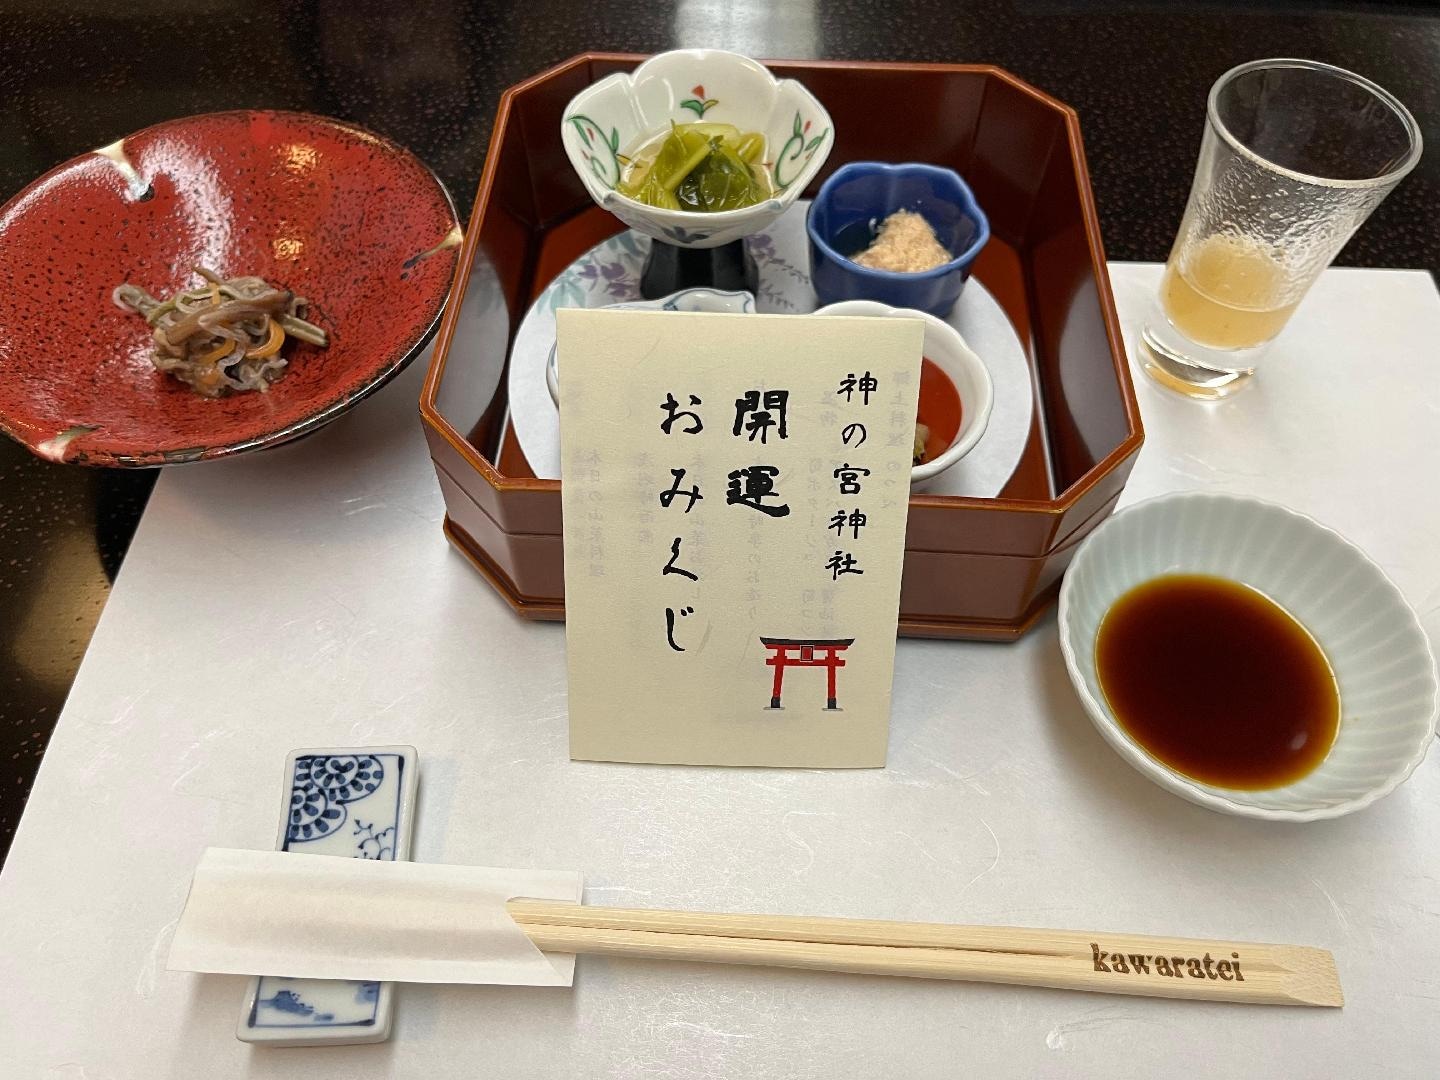 神の宮神社
開運
おみくじ
kawaratei